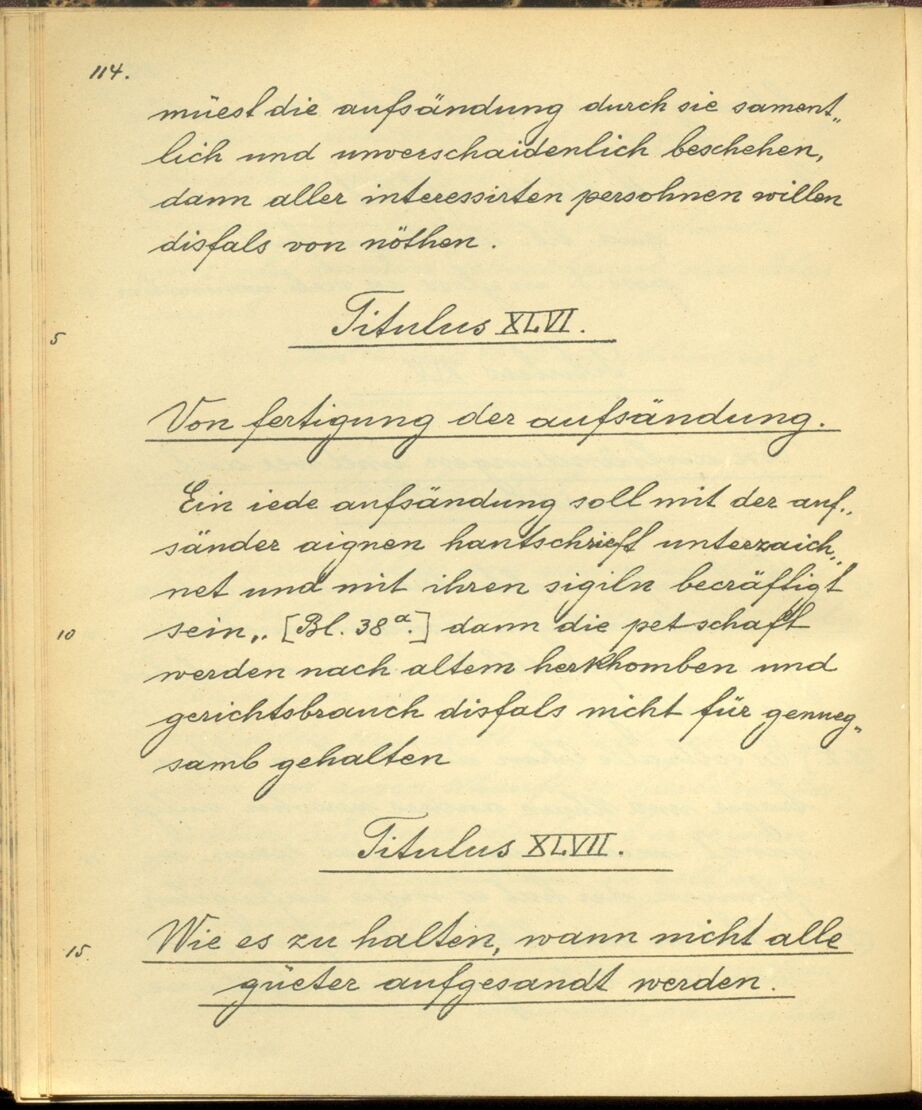 114.
müest die aufsändung durch sie sament„
lich und unverschaidenlich beschehen,
dann aller interessirten persohnen willen
disfals von nöthen.
5
Titulus XLVI.
Von fertigung der aufsändung.
Ein iede aufsändung soll mit der auf„
sänder aignen hantschrieft unterzaich„
net und mit ihren sigiln becräftigt
10 sein„ [Bl. 38a.] dann die petschaft
werden nach altem herkhomben und
gerichtsbrauch disfals nicht für genueg„
samb gehalten
Titulus XLVII.
15. Wie es zu halten, wann nicht alle
güeter aufgesandt werden.